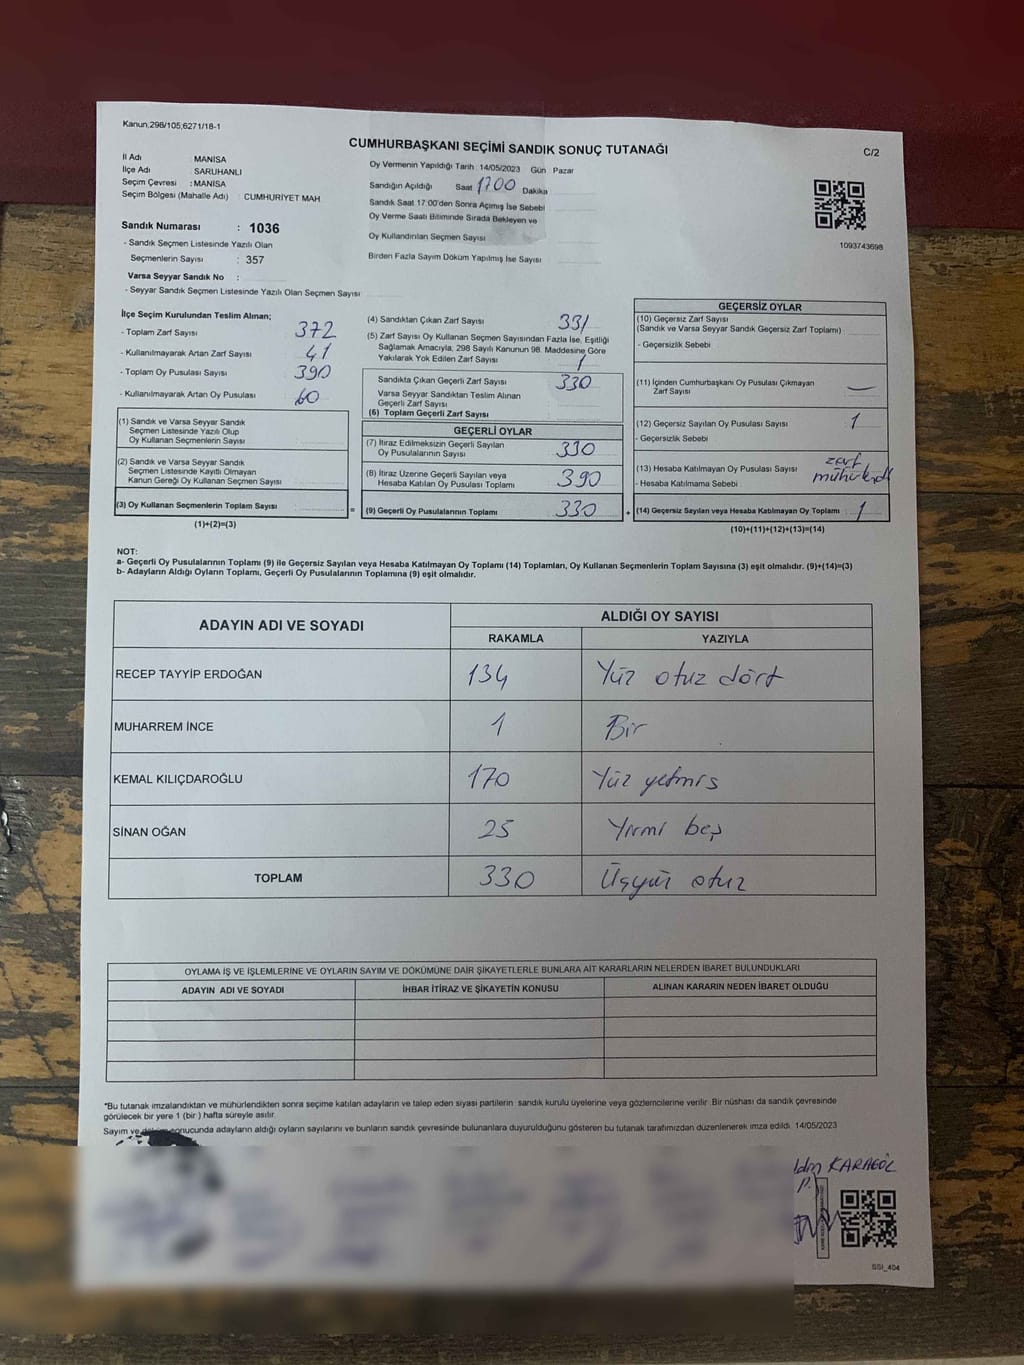 Kanun,298/105,6271/18-1
CUMHURBAŞKANI SEÇİMİ SANDIK SONUÇ TUTANAĞI
C/2
İl Adı : MANİSA
İlçe Adı : SARUHANLI
Seçim Çevresi : MANİSA
Seçim Bölgesi (Mahalle Adı) : CUMHURİYET MAH
Sandık Numarası : 1036
- Sandık Seçmen Listesinde Yazılı Olan
Seçmenlerin Sayısı : 357
Varsa Seyyar Sandık No :
- Seyyar Sandık Seçmen Listesinde Yazılı Olan Seçmen Sayısı
Oy Vermenin Yapıldığı Tarih : 14/05/2023 Gün Pazar
Sandığın Açıldığı Saat 1700 Dakika
Sandık Saat 17:00'den Sonra Açılmış İse Sebebi
Oy Verme Saati Bitiminde Sırada Bekleyen ve
Oy Kullandırılan Seçmen Sayısı
Birden Fazla Sayım Döküm Yapılmış İse Sayısı
1093743698
İlçe Seçim Kurulundan Teslim Alınan;
- Toplam Zarf Sayısı 372
- Kullanılmayarak Artan Zarf Sayısı 41
- Toplam Oy Pusulası Sayısı 390
- Kullanılmayarak Artan Oy Pusulası 60
(1) Sandık ve Varsa Seyyar Sandık
Seçmen Listesinde Yazılı Olup
Oy Kullanan Seçmenlerin Sayısı
(2) Sandık ve Varsa Seyyar Sandık
Seçmen Listesinde Kayıtlı Olmayan
Kanun Gereği Oy Kullanan Seçmen Sayısı
(3) Oy Kullanan Seçmenlerin Toplam Sayısı
(1)+(2)=(3)
(4) Sandıktan Çıkan Zarf Sayısı 331
(5) Zarf Sayısı Oy Kullanan Seçmen Sayısından Fazla İse, Eşitliği
Sağlamak Amacıyla, 298 Sayılı Kanunun 98. Maddesine Göre
Yakılarak Yok Edilen Zarf Sayısı 1
Sandıkta Çıkan Geçerli Zarf Sayısı 330
Varsa Seyyar Sandıktan Teslim Alınan
Geçerli Zarf Sayısı
(6) Toplam Geçerli Zarf Sayısı
GEÇERLİ OYLAR
(7) İtiraz Edilmeksizin Geçerli Sayılan
Oy Pusulalarının Sayısı 330
(8) İtiraz Üzerine Geçerli Sayılan veya
Hesaba Katılan Oy Pusulası Toplamı 390
= (9) Geçerli Oy Pusulalarının Toplamı 330 +
GEÇERSİZ OYLAR
(10) Geçersiz Zarf Sayısı
(Sandık ve Varsa Seyyar Sandık Geçersiz Zarf Toplamı)
- Geçersizlik Sebebi
(11) İçinden Cumhurbaşkanı Oy Pusulası Çıkmayan
Zarf Sayısı —
(12) Geçersiz Sayılan Oy Pusulası Sayısı 1
- Geçersizlik Sebebi
(13) Hesaba Katılmayan Oy Pusulası Sayısı zarf
- Hesaba Katılmama Sebebi
(14) Geçersiz Sayılan veya Hesaba Katılmayan Oy Toplamı 1
(10)+(11)+(12)+(13)=(14)
NOT:
a- Geçerli Oy Pusulalarının Toplamı (9) ile Geçersiz Sayılan veya Hesaba Katılmayan Oy Toplamı (14) Toplamları, Oy Kullanan Seçmenlerin Toplam Sayısına (3) eşit olmalıdır. (9)+(14)=(3)
b- Adayların Aldığı Oyların Toplamı, Geçerli Oy Pusulalarının Toplamına (9) eşit olmalıdır.
ADAYIN ADI VE SOYADI
ALDIĞI OY SAYISI
RAKAMLA YAZIYLA
RECEP TAYYİP ERDOĞAN 134 Yüz otuz dört
MUHARREM İNCE 1 Bir
KEMAL KILIÇDAROĞLU 170 Yüz yetmiş
SİNAN OĞAN 25 Yirmi beş
TOPLAM 330 Üçyüz otuz
OYLAMA İŞ VE İŞLEMLERİNE VE OYLARIN SAYIM VE DÖKÜMÜNE DAİR ŞİKAYETLERLE BUNLARA AİT KARARLARIN NELERDEN İBARET BULUNDUKLARI
ADAYIN ADI VE SOYADI İHBAR İTİRAZ VE ŞİKAYETİN KONUSU ALINAN KARARIN NEDEN İBARET OLDUĞU
*Bu tutanak imzalandıktan ve mühürlendikten sonra seçime katılan adayların ve talep eden siyasi partilerin sandık kurulu üyelerine veya gözlemcilerine verilir. Bir nüshası da sandık çevresinde
görülecek bir yere 1 (bir) hafta süreyle asılır.
Sayım ve döküm sonucunda adayların aldığı oyların sayılarını ve bunların sandık çevresinde bulunanlara duyurulduğunu gösteren bu tutanak tarafımızdan düzenlenerek imza edildi. 14/05/2023
KARAGÖL
SSİ_404